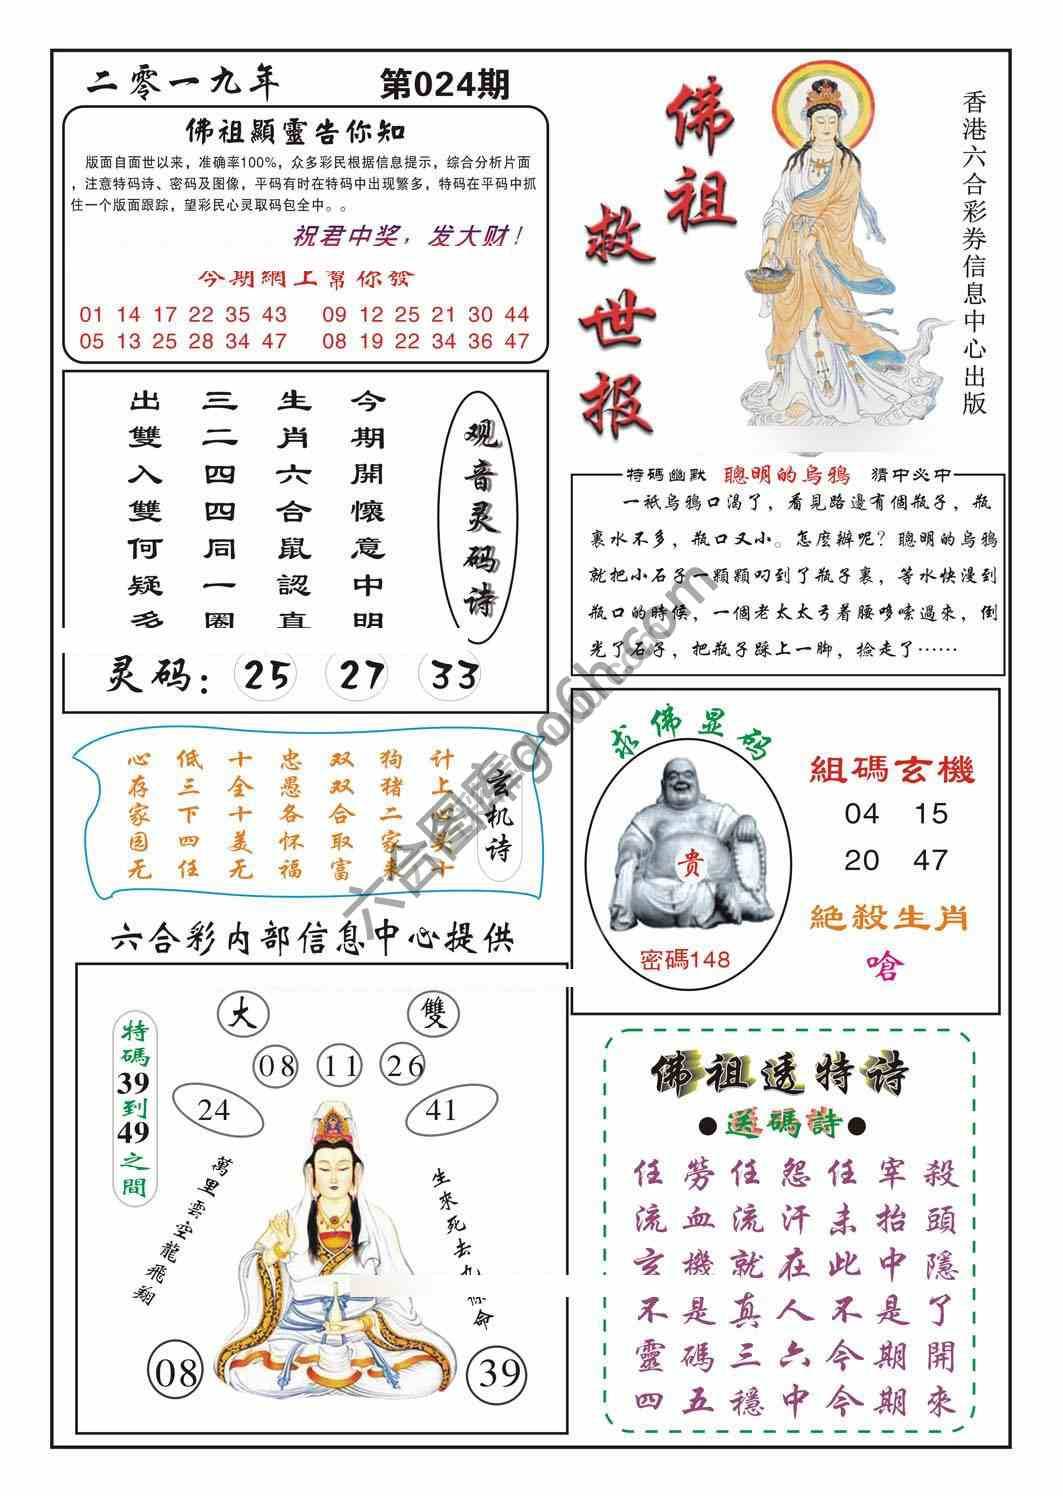 二零一九年
第024期
佛祖顯靈告你知
版面自面世以来，准确率100%，众多彩民根据信息提示，综合分析片面
，注意特码诗、密码及图像，平码有时在特码中出现繁多，特码在平码中抓
住一个版面跟踪，望彩民心灵取码包全中。。
祝君中奖，发大财！
今期網上幫你發
01 14 17 22 35 43 09 12 25 21 30 44
05 13 25 28 34 47 08 19 22 34 36 47
佛祖
救世报
香港六合彩券信息中心出版
观音灵码诗
今期開懷意中明
生肖六合鼠認真
三二四四同一圈
出雙入雙何疑多
灵码：25 27 33
特碼幽默 聰明的烏鴉 猜中必中
一祇烏鴉口渴了，看見路邊有個瓶子，瓶
裏水不多，瓶口又小。怎麼辦呢？聰明的烏鴉
就把小石子一顆顆叼到了瓶子裏，等水快漫到
瓶口的時候，一個老太太弓着腰哆嗦過來，倒
光了石子，把瓶子踩上一脚，撿走了……
玄机诗
计上心头来十
狗猪二家
双双合取富
忠愚各怀福
十全十美无
低三下四任
心存家园无
求佛显码
贵
密碼148
組碼玄機
04 15
20 47
絕殺生肖
嗆
六合彩内部信息中心提供
大
雙
08 11 26
24
41
特碼39到49之間
萬里雲空龍飛翔
生來死去九
命
08
39
佛祖透特诗
●送碼詩●
任勞任怨任宰殺
流血流汗未抬頭
玄機就在此中隱
不是真人不是了
靈碼三六今期開
四五穩中今期來
六合图库go6h.com